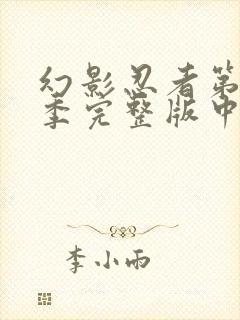 幻影忍者第
季完整版中
李小雨